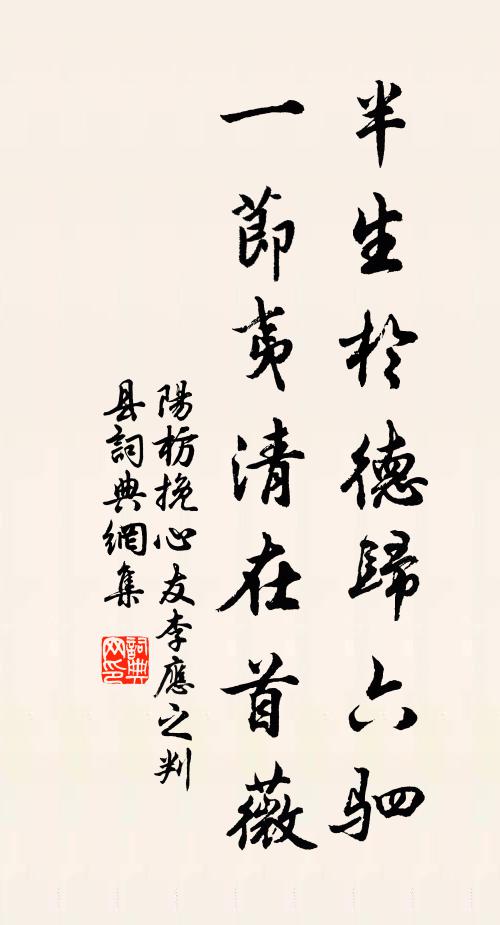 半生於德歸六驷
一節夷清在首薇
陽枋挽心友李應之判
县詞典網集
詞典网印